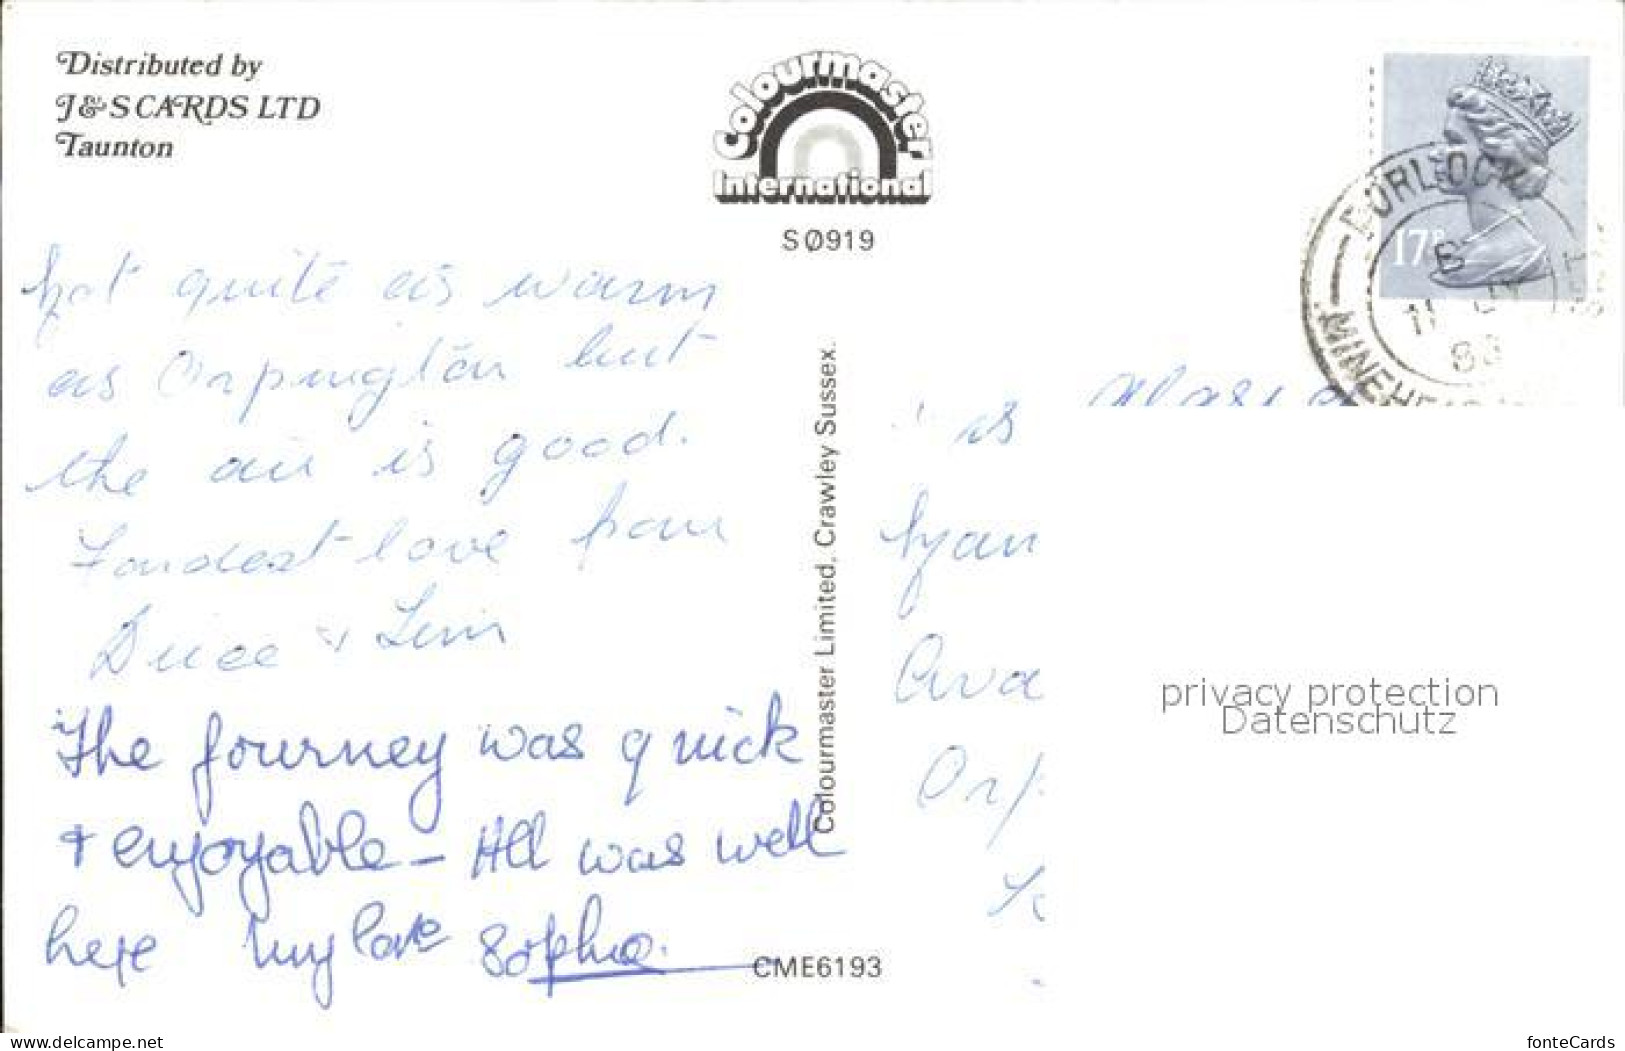 Distributed by
J&S CARDS LTD
Taunton
Colourmaster
International
SØ919
17P
PORLOCK
B
11 JY
MINEHEAD
Not quite as warm
as Orpington but
the air is good.
Fondest love from
&
The journey was quick
+ enjoyable – All was well
here my love Sophie.
Colourmaster Limited, Crawley Sussex.
CME6193
privacy protection
Datenschutz
www.delcampe.net
fonteCards